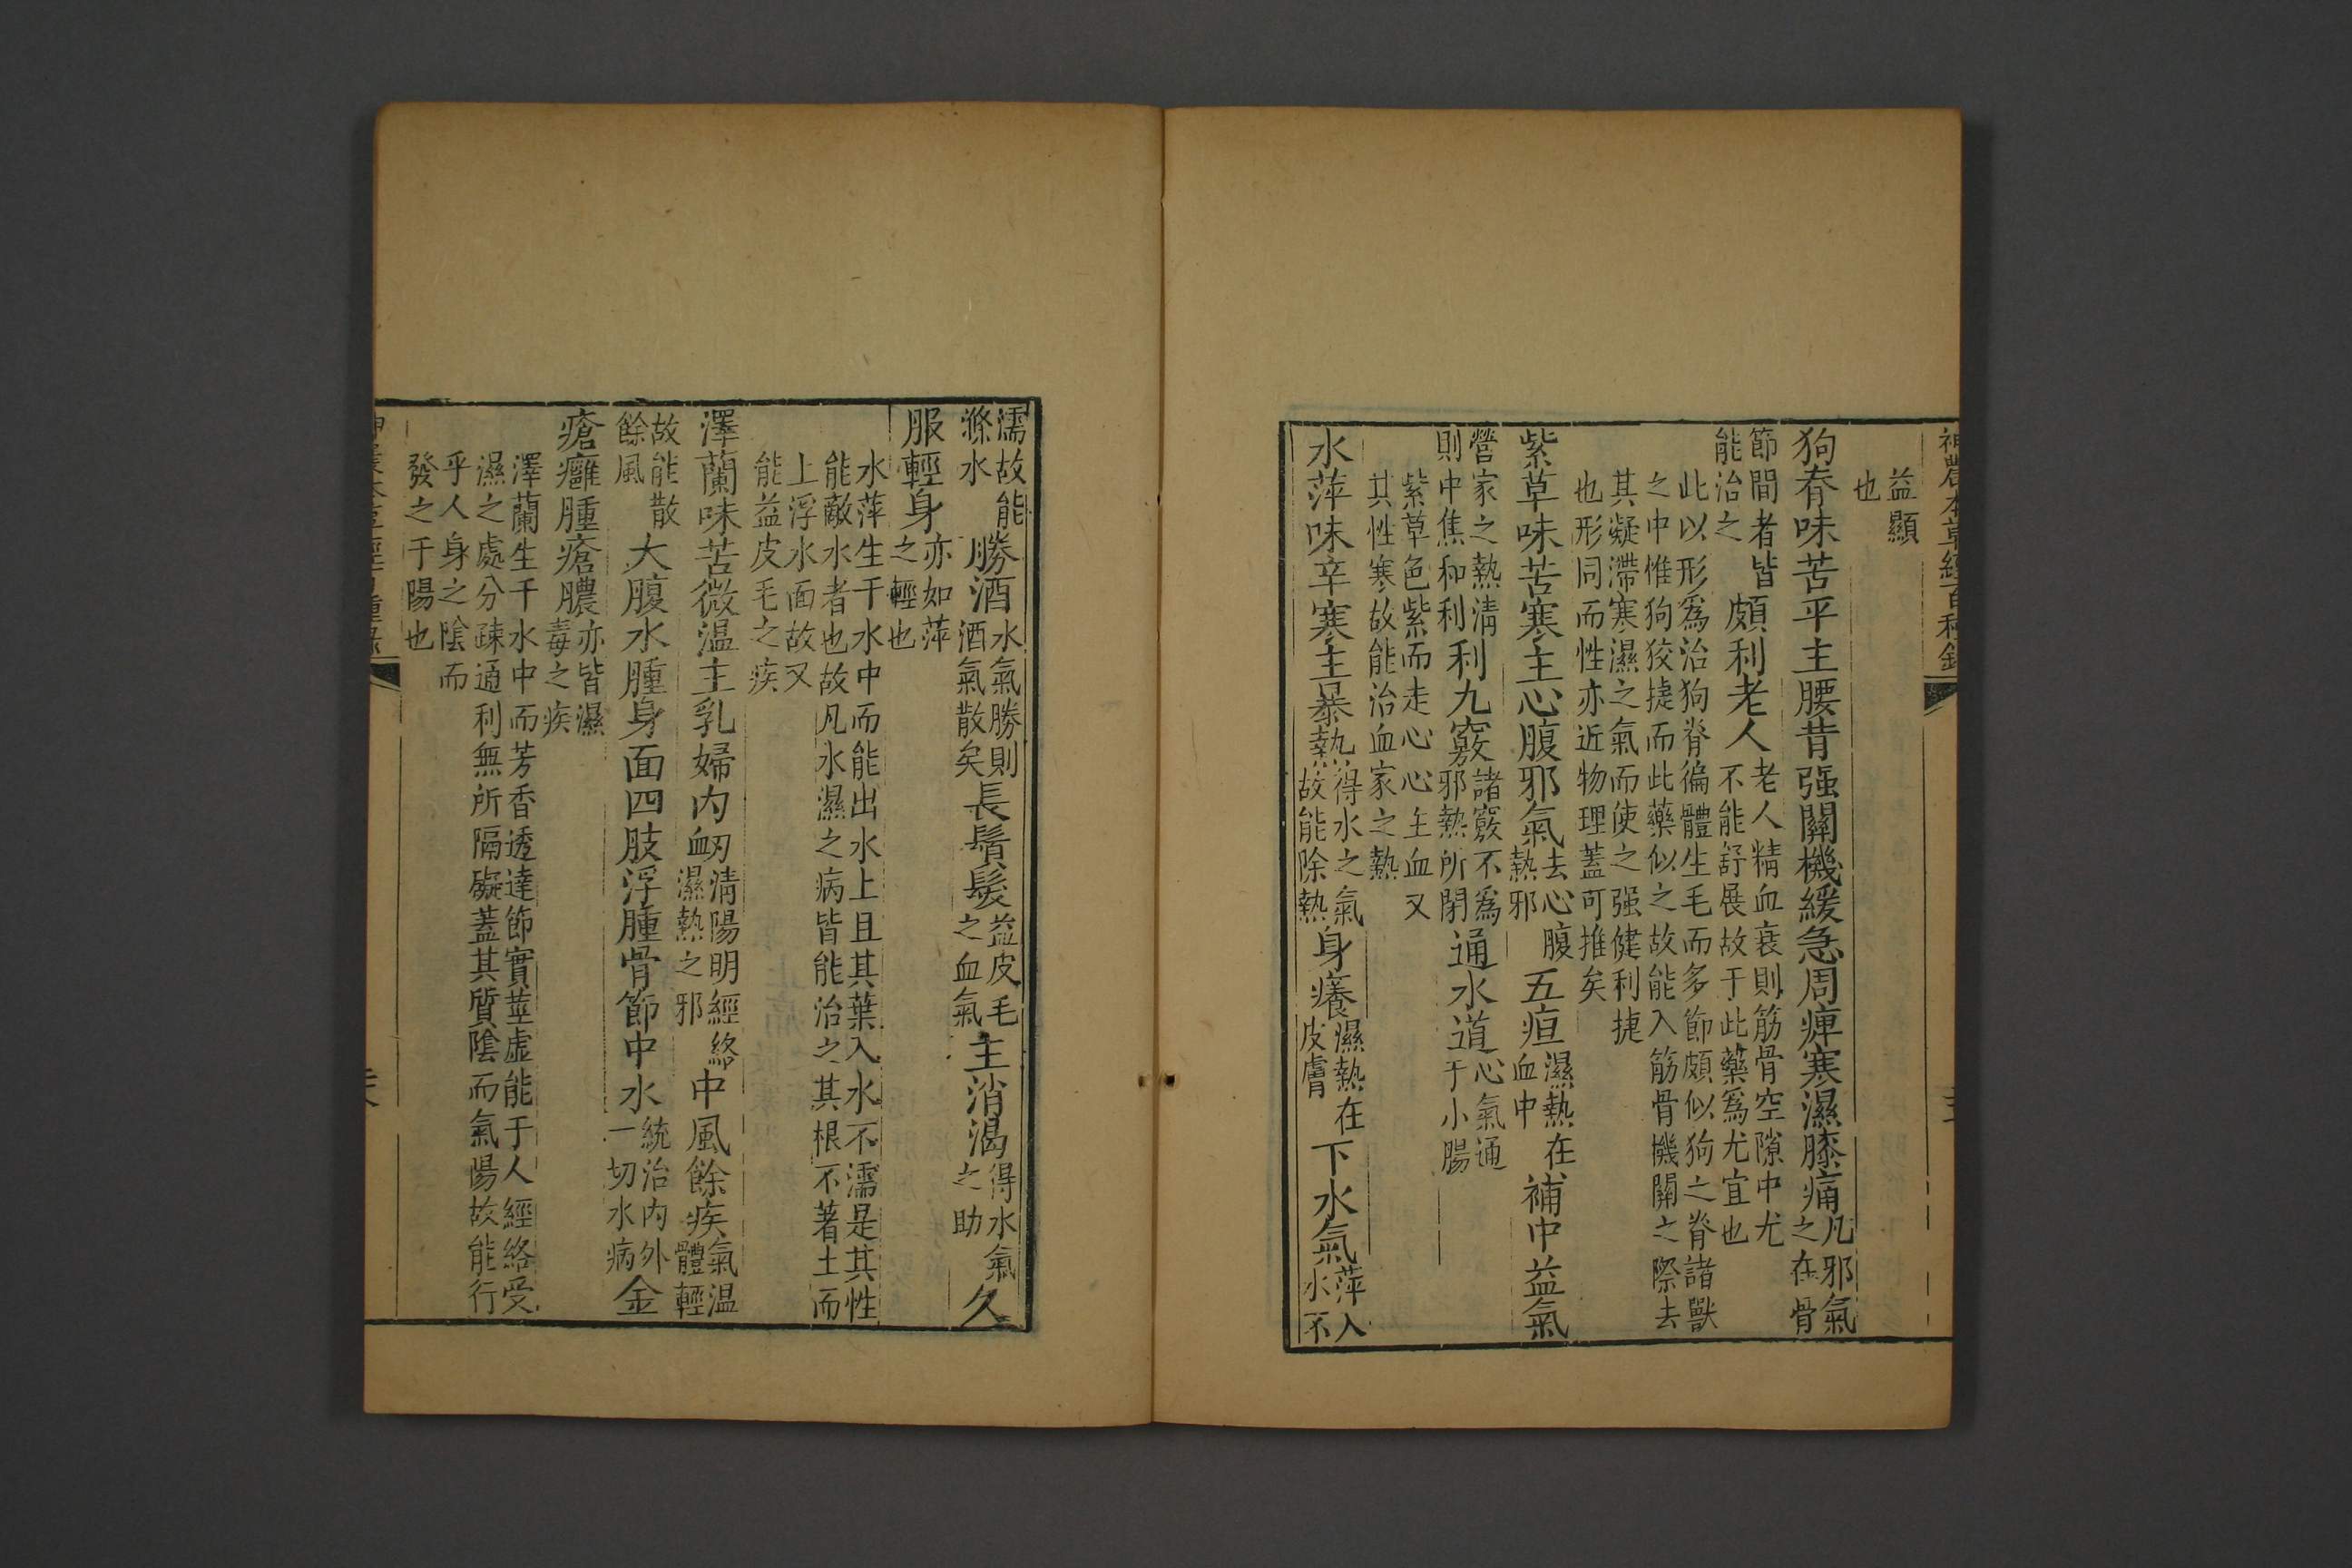 神農本草經百種錄
益顯
也
狗脊味苦平主腰背强關機緩急周痺寒濕膝痛凡邪氣之在骨
節間者皆能治之頗利老人老人精血衰則筋骨空隙中尤不能舒展故于此藥爲尤宜也
此以形爲治狗脊徧體生毛而多節頗似狗之脊諸獸
之中惟狗狡捷而此藥似之故能入筋骨機關之際去
其凝滯寒濕之氣而使之强健利捷
也形同而性亦近物理蓋可推矣
紫草味苦寒主心腹邪氣去心腹熱邪五疸濕熱在血中補中益氣
營家之熱清則中焦和利利九竅諸竅不爲邪熱所閉通水道心氣通于小腸
紫草色紫而走心心主血又
其性寒故能治血家之熱
水萍味辛寒主暴熱得水之氣故能除熱身癢濕熱在皮膚下水氣萍入水不
濡故能滌水勝酒水氣勝則酒氣散矣長鬚髮益皮毛之血氣主消渴得水氣之助久
服輕身亦如萍之輕也
水萍生于水中而能出水上且其葉入水不濡是其性
能敵水者也故凡水濕之病皆能治之其根不著土而
上浮水面故又
能益皮毛之疾
澤蘭味苦微温主乳婦内衄清陽明經絡濕熱之邪中風餘疾氣温體輕
故能散餘風大腹水腫身面四肢浮腫骨節中水統治内外一切水病金
瘡癰腫瘡膿亦皆濕毒之疾
澤蘭生于水中而芳香透達節實莖虚能于人經絡受
濕之處分疎通利無所隔礙蓋其質陰而氣陽故能行
乎人身之陰而
發之于陽也